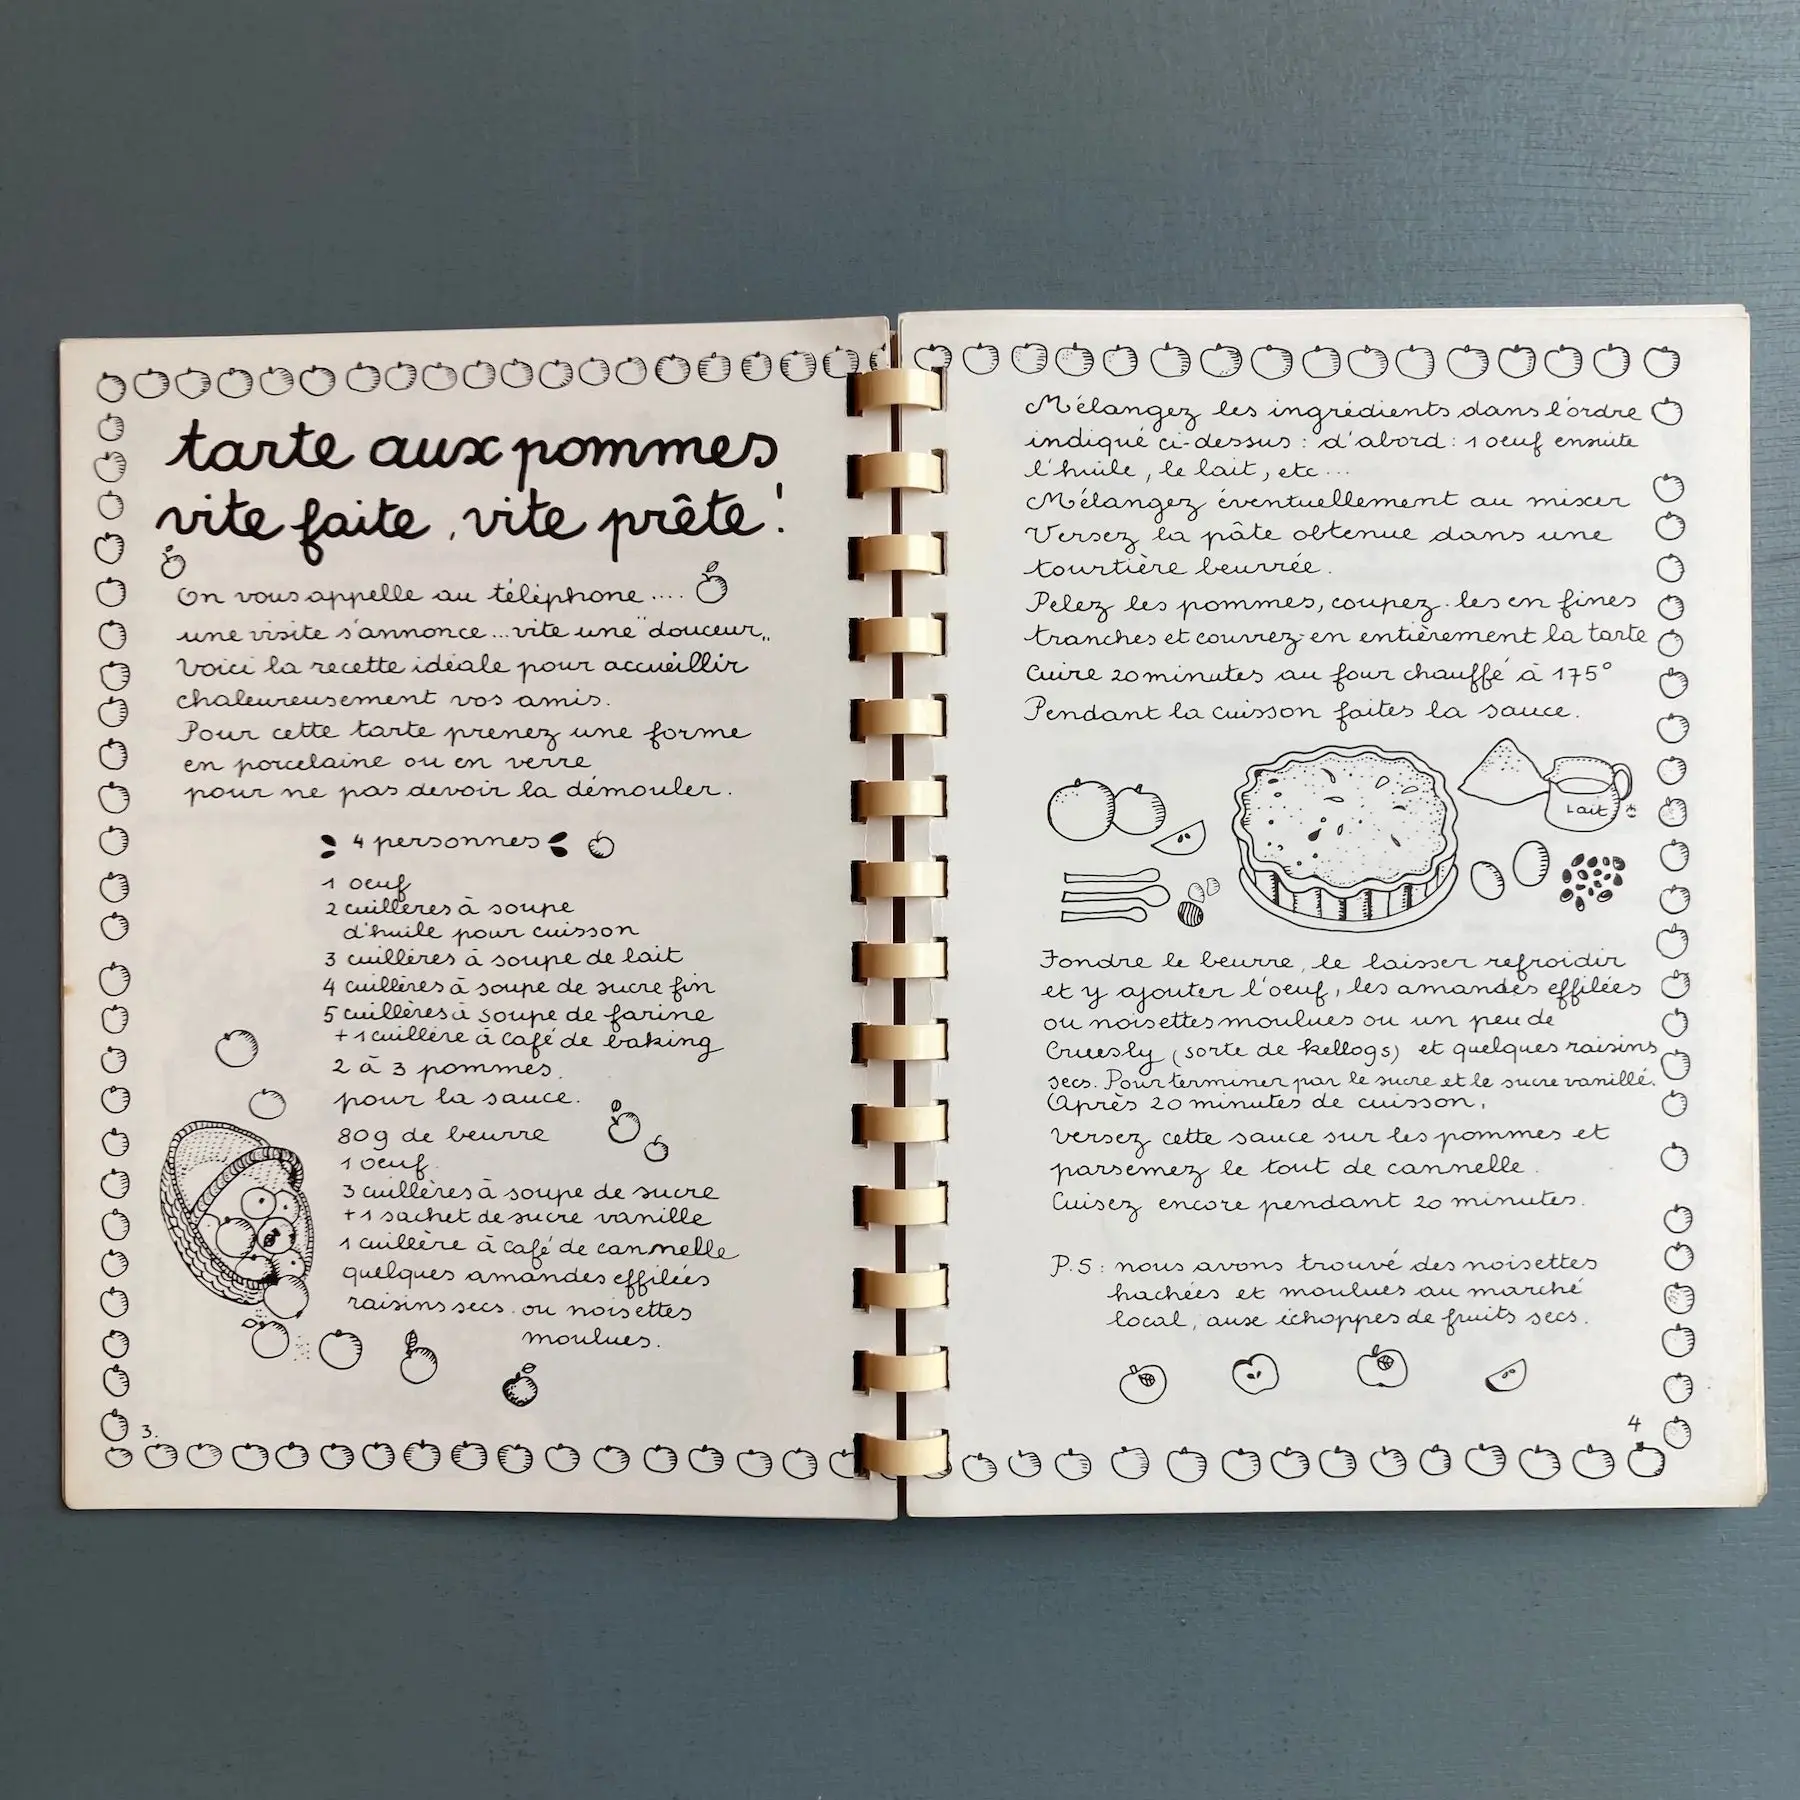 tarte aux pommes
vite faite, vite prête!
On vous appelle au téléphone....
une visite s'annonce...vite une "douceur„
Voici la recette idéale pour accueillir
chaleureusement vos amis.
Pour cette tarte prenez une forme
en porcelaine ou en verre
pour ne pas devoir la démouler.
4 personnes
1 oeuf
2 cuillères à soupe
d'huile pour cuisson
3 cuillères à soupe de lait
4 cuillères à soupe de sucre fin
5 cuillères à soupe de farine
+ 1 cuillère à café de baking
2 à 3 pommes.
pour la sauce.
80g de beurre
1 oeuf.
3 cuillères à soupe de sucre
+ 1 sachet de sucre vanille
1 cuillère à café de cannelle
quelques amandes effilées
raisins secs. ou noisettes
moulues.
3.
Mélangez les ingrédients dans l'ordre
indiqué ci-dessus : d'abord : 1 oeuf ensuite
l'huile, le lait, etc...
Mélangez éventuellement au mixer
Versez la pâte obtenue dans une
tourtière beurrée.
Pelez les pommes, coupez-les en fines
tranches et couvrez-en entièrement la tarte
Cuire 20 minutes au four chauffé à 175°
Pendant la cuisson faites la sauce.
Lait
Fondre le beurre, le laisser refroidir
et y ajouter l'oeuf, les amandes effilées
ou noisettes moulues ou un peu de
Cruesly (sorte de kellogs) et quelques raisins
secs. Pour terminer par le sucre et le sucre vanillé.
Après 20 minutes de cuisson,
versez cette sauce sur les pommes et
parsemez le tout de cannelle.
Cuisez encore pendant 20 minutes.
P.S : nous avons trouvé des noisettes
hachées et moulues au marché
local, aux échoppes de fruits secs.
4